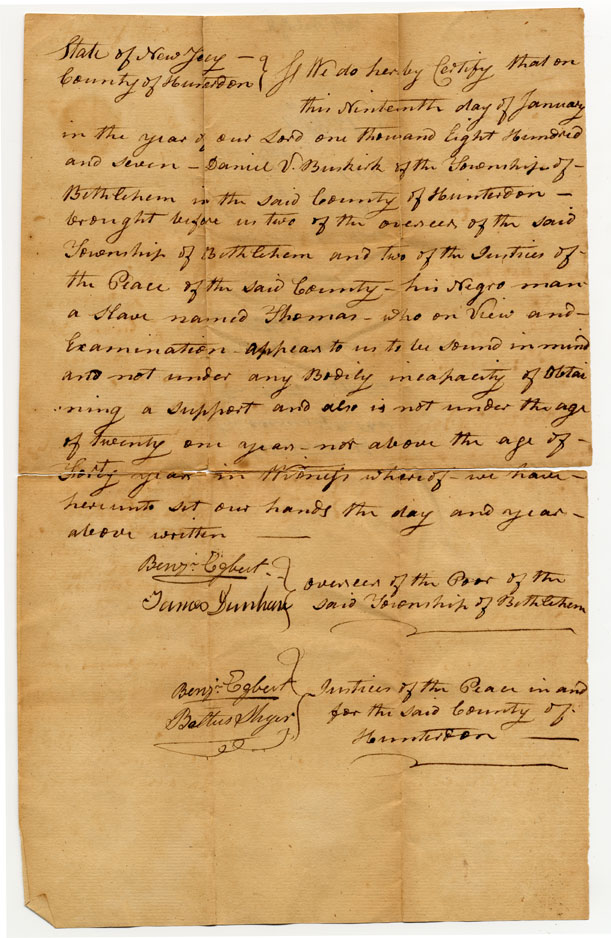 State of New Jersy —
County of Hunterdon } ss We do herby Certify that on
this Ninteenth day of January
in the year of our Lord one thousand Eight Hundred
and seven – Daniel V. Buskirk of the Township of –
Bethlehem in the said County of Hunterdon –
brought before us two of the overseers of the said
Township of Bethlehem and two of the Justices of –
the Peace of the said County – his Negro man
a Slave named Thomas – who on View and –
Examination – appears to us to be sound in mind
and not under any Bodily incapacity of Obtai
ning a support and also is not under the age
of twenty one years – nor above the age of –
Forty years in Witness whereof – we have –
hereunto set our hands the day and year –
above written —
Benjn. Egbert
James Dunham } overseers of the Poor of the
said Township of Bethlehem
Benjn. Egbert
Justices of the Peace in and
for the said County of
Hunterdon —